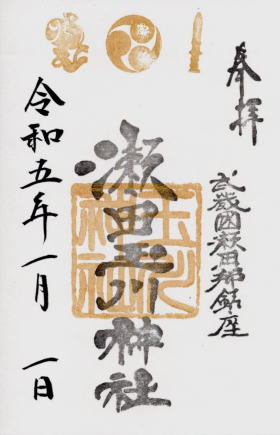 奉拝
武蔵國瀬田郷鎮座
瀬田玉川神社
玉川神社
令和五年一月一日